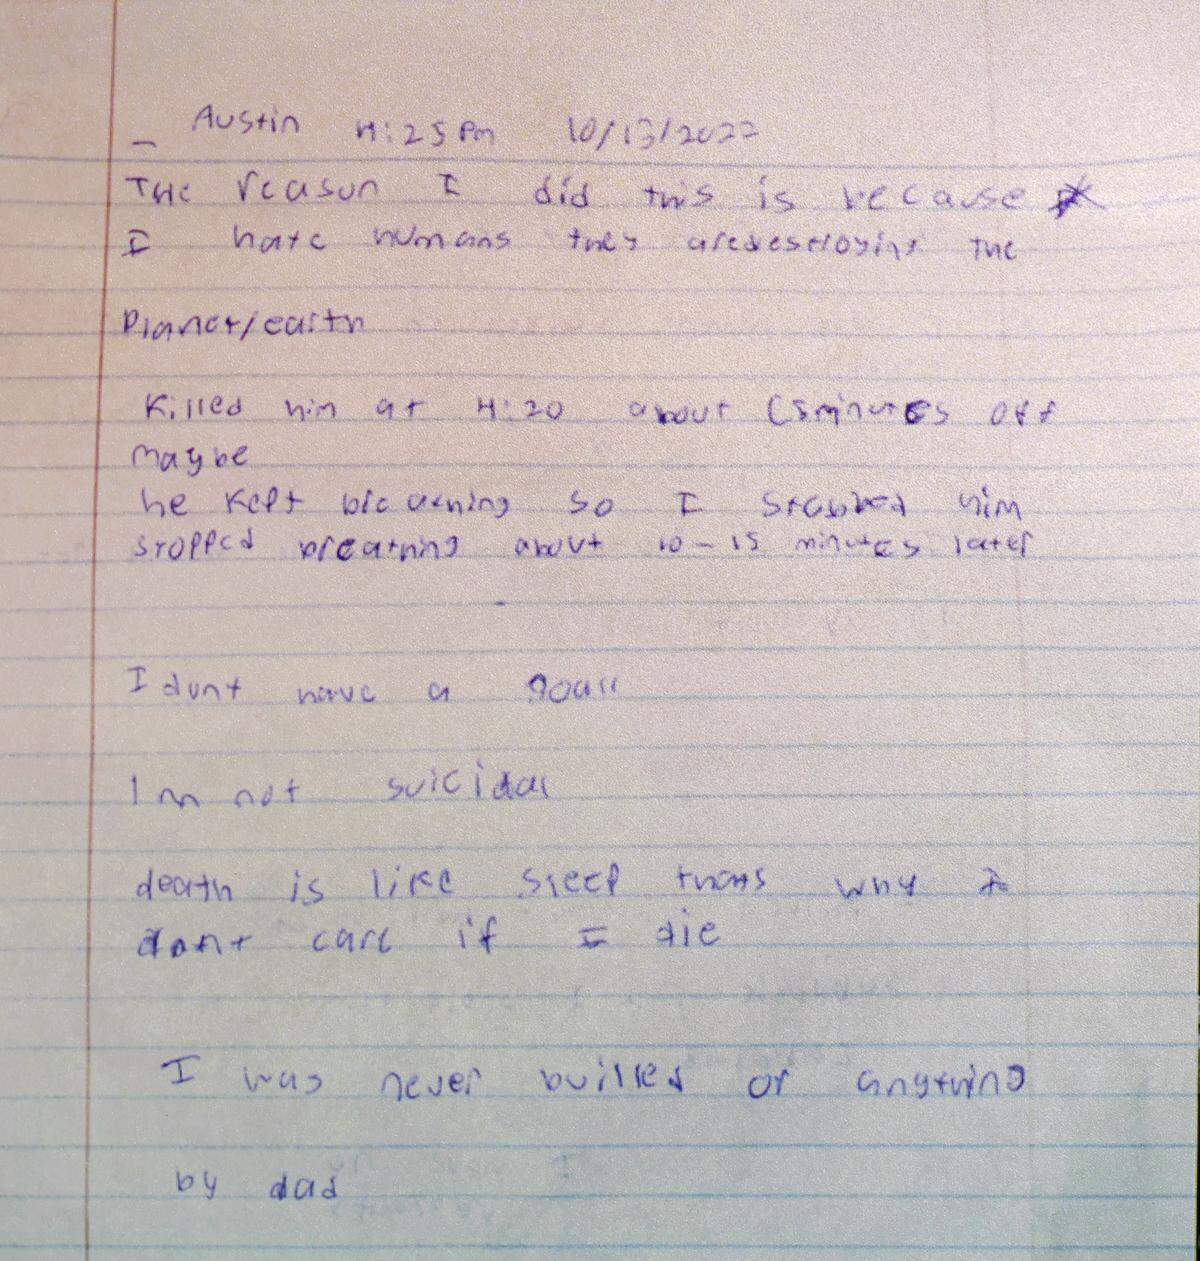 Austin 4:25 Pm 10/13/2022
THe reason I did this is because
I hate humans they aredestroying the
Planet/earth
Killed him at 4:20 about (5minutes off
maybe
he kept breathing so I stabbed him
stopped breathing about 10-15 minutes later
I dont have a goall
Im not suicidal
death is like sleep thats why I
dont care if I die
I was never bullied or anything
by dad